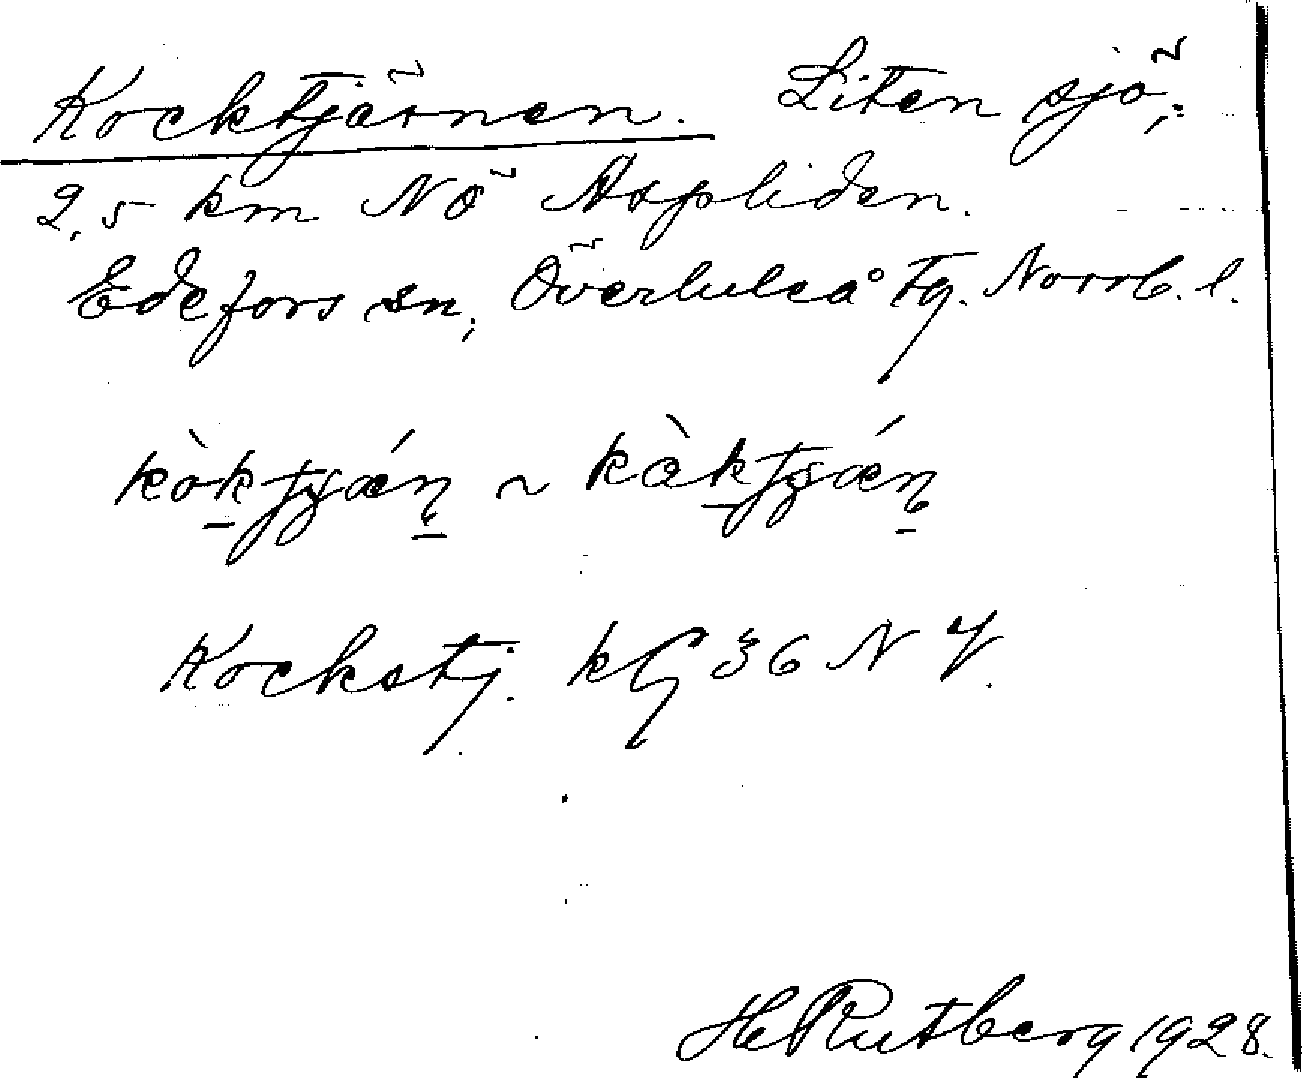 Kocktjärnen. Liten sjö,
2,5 km NÖ Aspliden.
Edefors sn, Överluleå tg. Norrb. l.
kòktjǽn ~ kàktjǽn
Kockstj. kG 36 N V.
H Rutberg 1928.